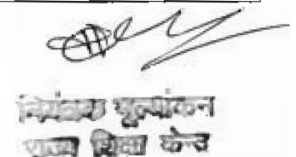 नियंत्रक मूल्यांकन
राज्य शिक्षा केन्द्र